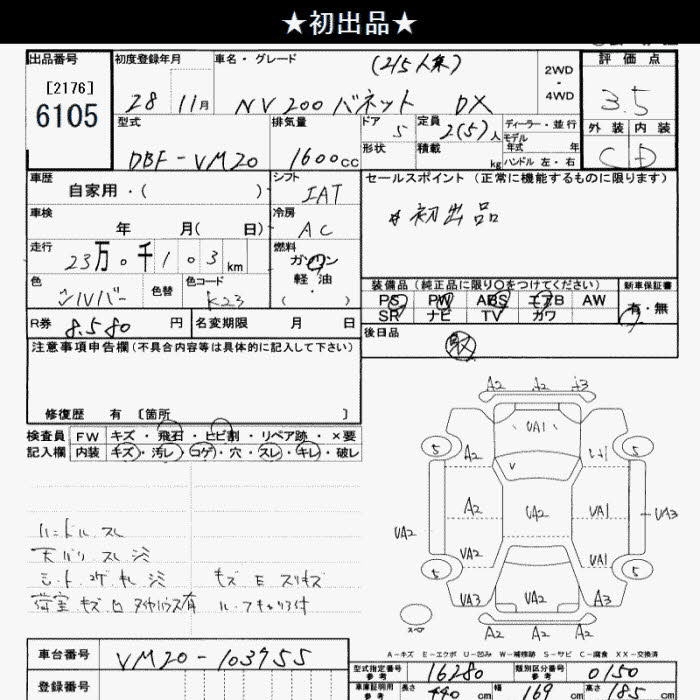 ★初出品★
出品番号 初度登録年月 車名・グレード (215人気) 2WD・4WD 評価点
[2176]
6105 28 11月 NV200 バネット DX 3.5
型式 排気量 ドア 5 定員 2(5)人 ディーラー・並行 外装 内装
モデル年式 年
DBF-VM20 1600cc 形状 積載 kg ハンドル 左・右 C D
車歴 シフト セールスポイント (正常に機能するものに限ります)
自家用・( ) IAT
車検 冷房 #初出品
年 月( 日) AC
走行 燃料
23万0千103km ガソリン
色 色替 色コード 軽・油 装備品 (純正品に限り○をつけてください) 新車保証書
シルバー K23 ( ・ ) PS PW ABS エアB AW 有・無
SR ナビ TV カワ
R券 8.580 円 名変期限 月 日 後日品
取
注意事項申告欄 (不具合内容等は具体的に記入して下さい)
修復歴 有 〔箇所 〕
A2 A2 A3
検査員 FW キズ・飛石・ヒビ割・リペア跡・×要 UA1
記入欄 内装 キズ・汚レ・コゲ・穴・スレ・キレ・破レ 5 A2 W1 5
V
A2 UA2 UA1 UA3
ハンドル スレ UA2
天バリ スレ 汚 UA2 UA1
シート コゲ キレ 汚 キズ E スリキズ 5 5
荷室 キズ 凹 タイヤハウス有 UA3 UA2 A3
スペア A2 A2 A2
A-キズ E-エクボ U-凹み W-補修跡 S-サビ C-腐食 XX-交換済
車台番号 VM20-103955 型式指定番号 参考 16280 類別区分番号 参考 0150
登録番号 車庫証明用 参考 長さ 440 cm 幅 169 cm 高さ 185 cm